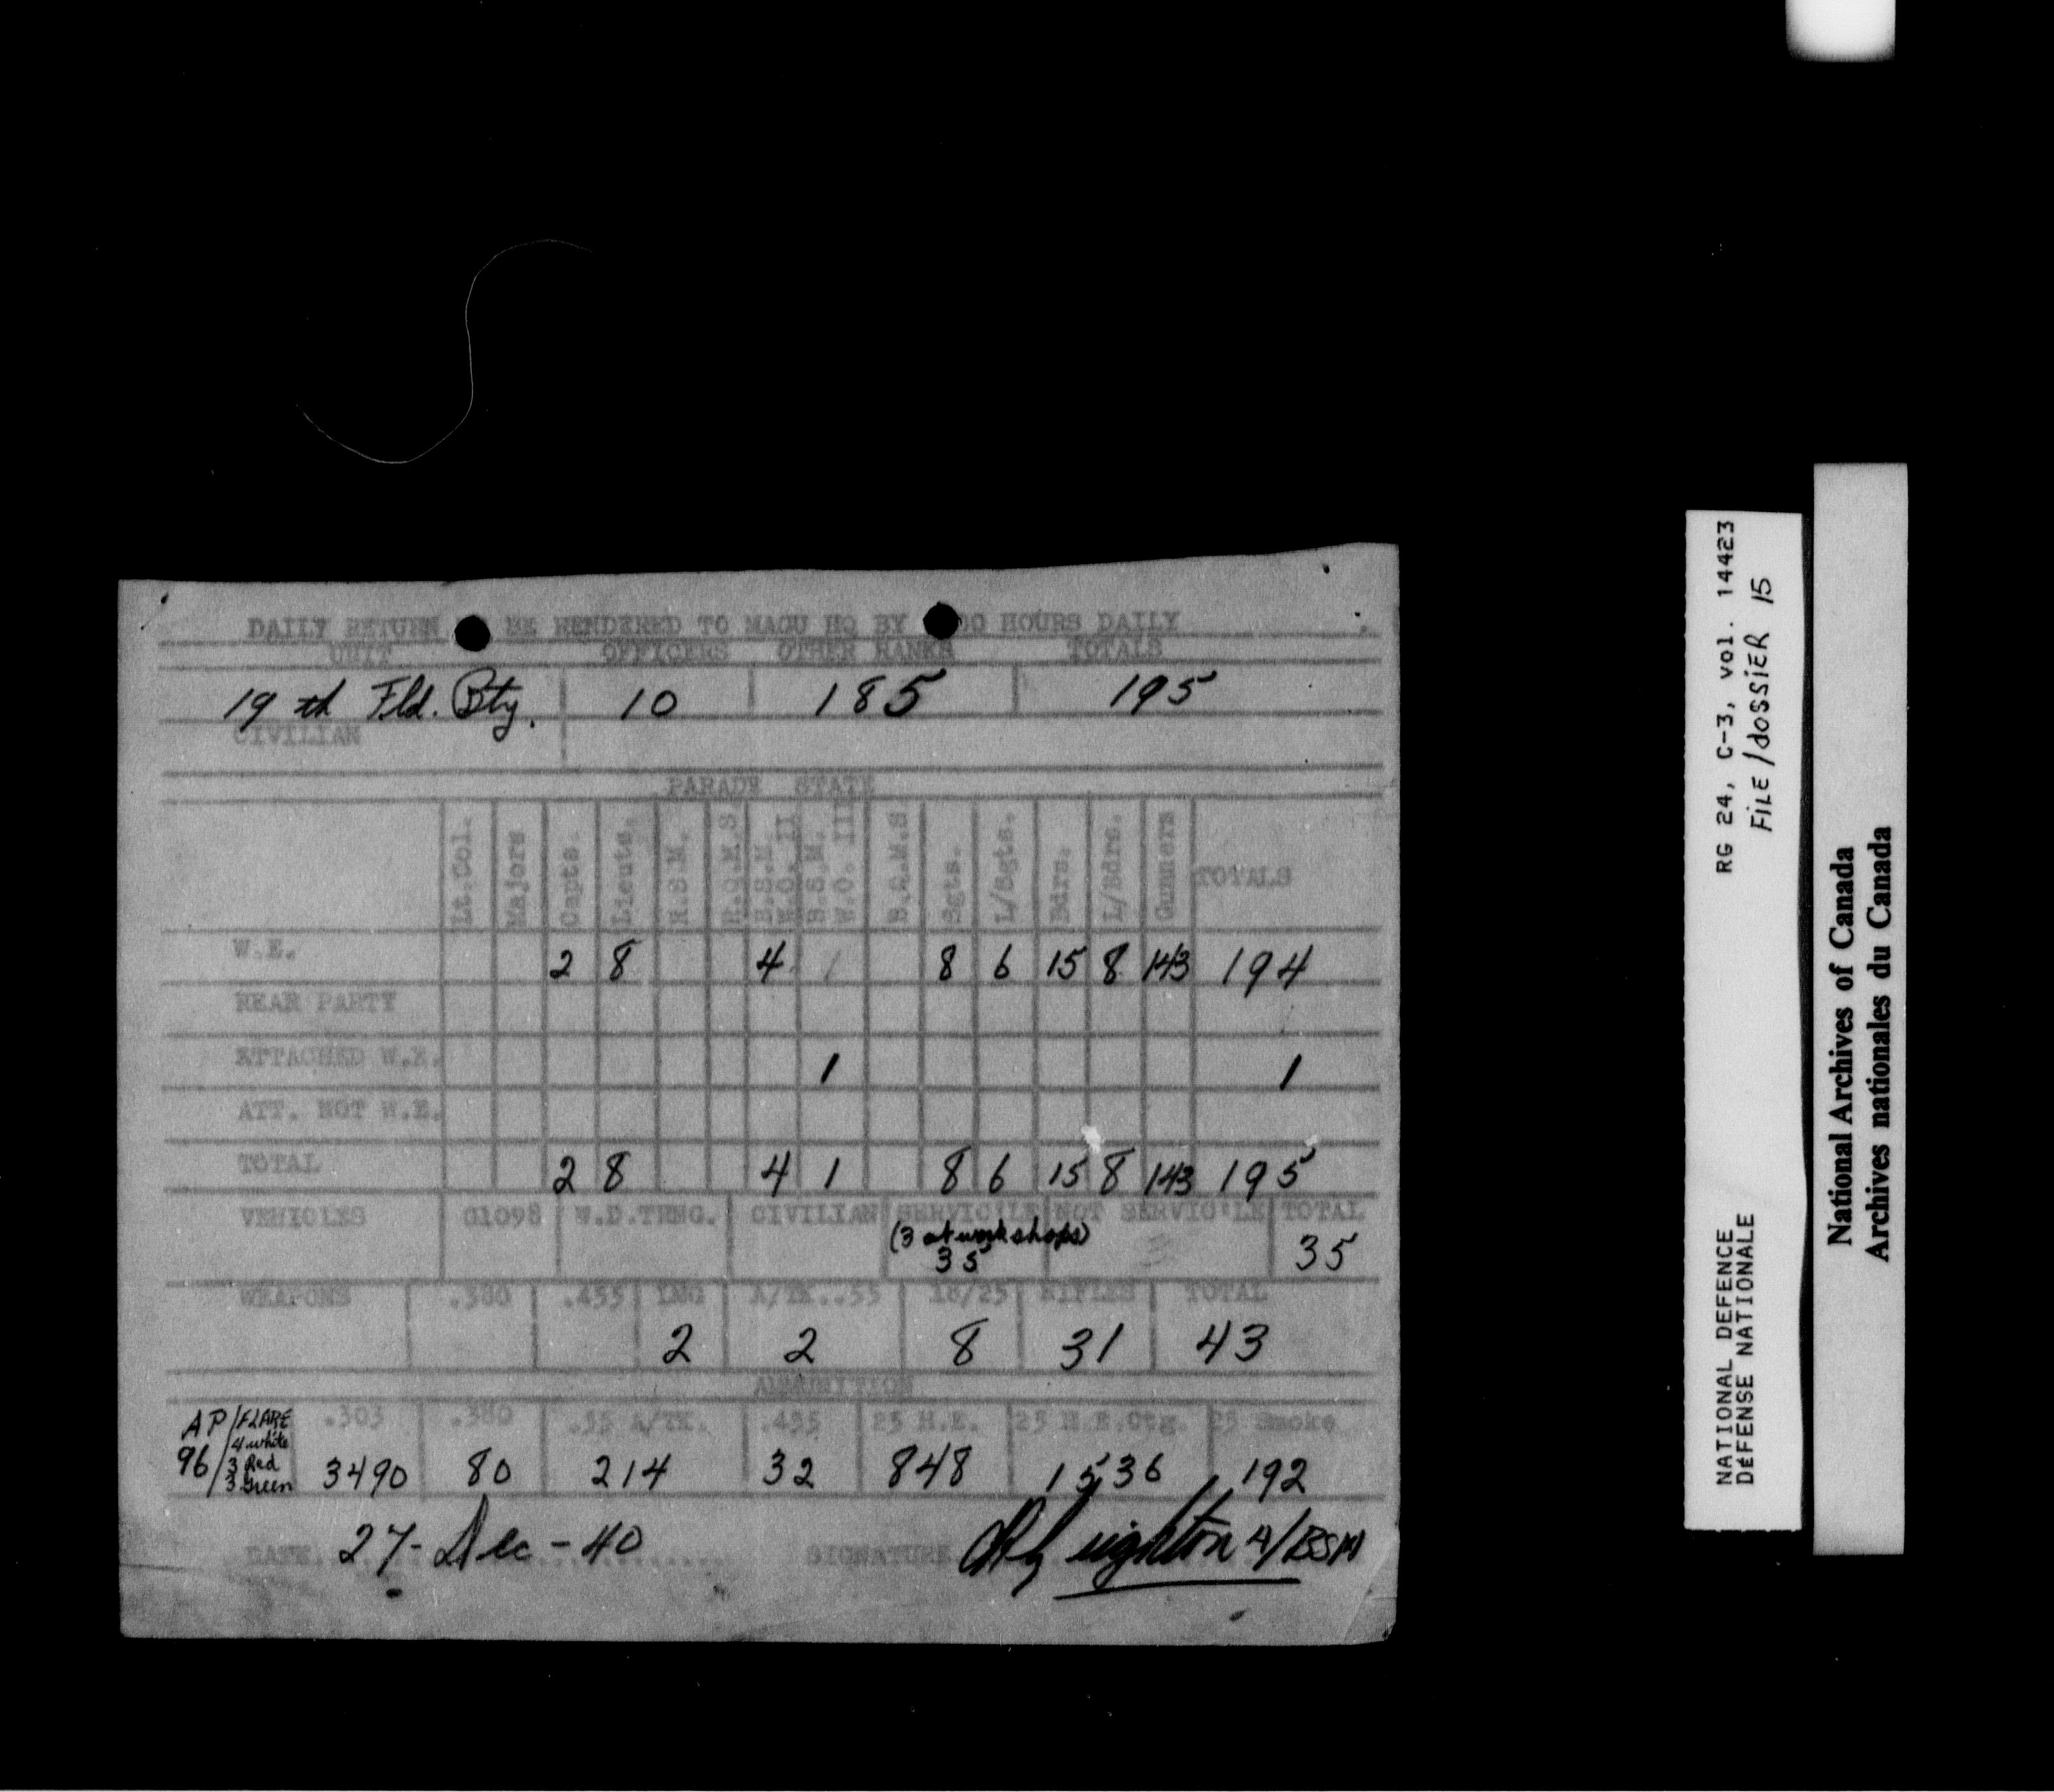 DAILY RETURN BE RENDERED TO MAGU HQ BY 00 HOURS DAILY
UNIT OFFICERS OTHER RANKS TOTALS
19 th Fld. Bty. 10 185 195
CIVILIAN
PARADE STATE
Lt.Col. Majors Capts. Lieuts. R.S.M. R.Q.M.S. B.S.M. W.O. II B.S.M. W.O. III B.Q.M.S. Sgts. L/Sgts. Bdrs. L/Bdrs. Gunners TOTALS
W.E. 2 8 4 1 8 6 15 8 143 194
REAR PARTY
ATTACHED W.E. 1 1
ATT. NOT W.E.
TOTAL 2 8 4 1 8 6 15 8 143 195
VEHICLES G1098 W.D.TRNG. CIVILIAN SERVIC'LE NOT SERVIC'LE TOTAL
(3 at workshops)
35 3 35
WEAPONS .380 .455 LMG A/TK..55 18/25 RIFLES TOTAL
2 2 8 31 43
AMMUNITION
AP/FLARE .303 .380 .55 A/TK. .455 25 H.E. 25 H.E.Ctg. 25 Smoke
4 white
96/3 Red 3490 80 214 32 848 1536 192
3 Green
DATE 27-Dec-40 SIGNATURE A/BSM
RG 24, C-3, vol. 14423
FILE/dossier 15
NATIONAL DEFENCE
DÉFENSE NATIONALE
National Archives of Canada
Archives nationales du Canada